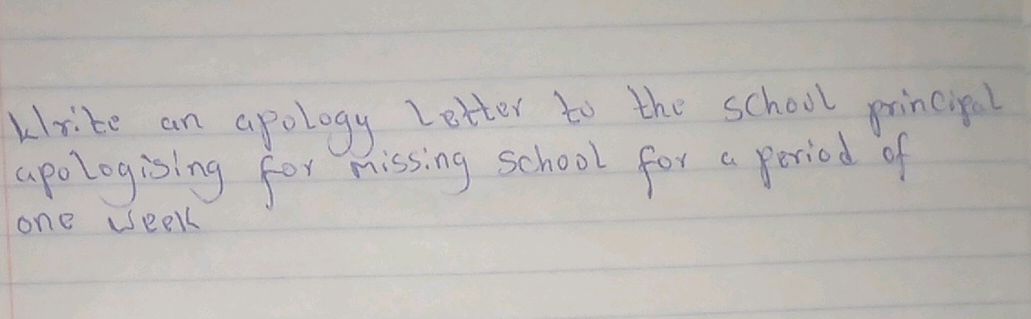 Write an apology letter to the school principal
apologising for missing school for a period of
one week